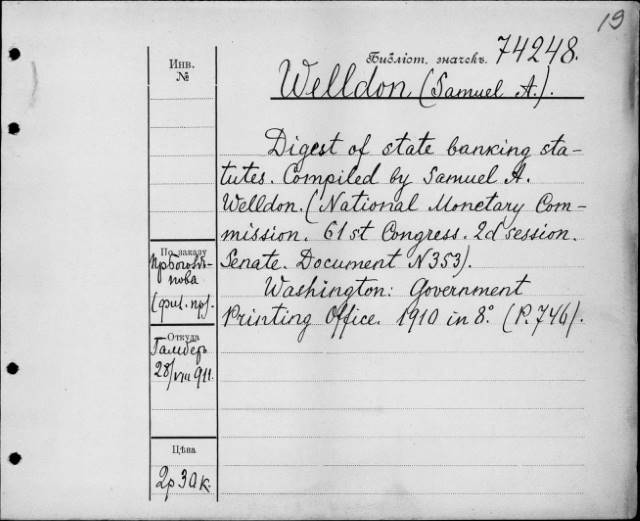 19
Инв.
№
Библіот. значекъ. 74248.
Welldon (Samuel A.).
Digest of state banking sta-
tutes. Compiled by Samuel A.
Welldon. (National Monetary Com-
mission. 61st Congress. 2d session.
Senate. Document N353).
Washington: Government
Printing Office. 1910 in 8.° (P. 746).
По заказу
(фил. пр).
Откуда
28/VIII 911.
Цѣна
2р 30к.